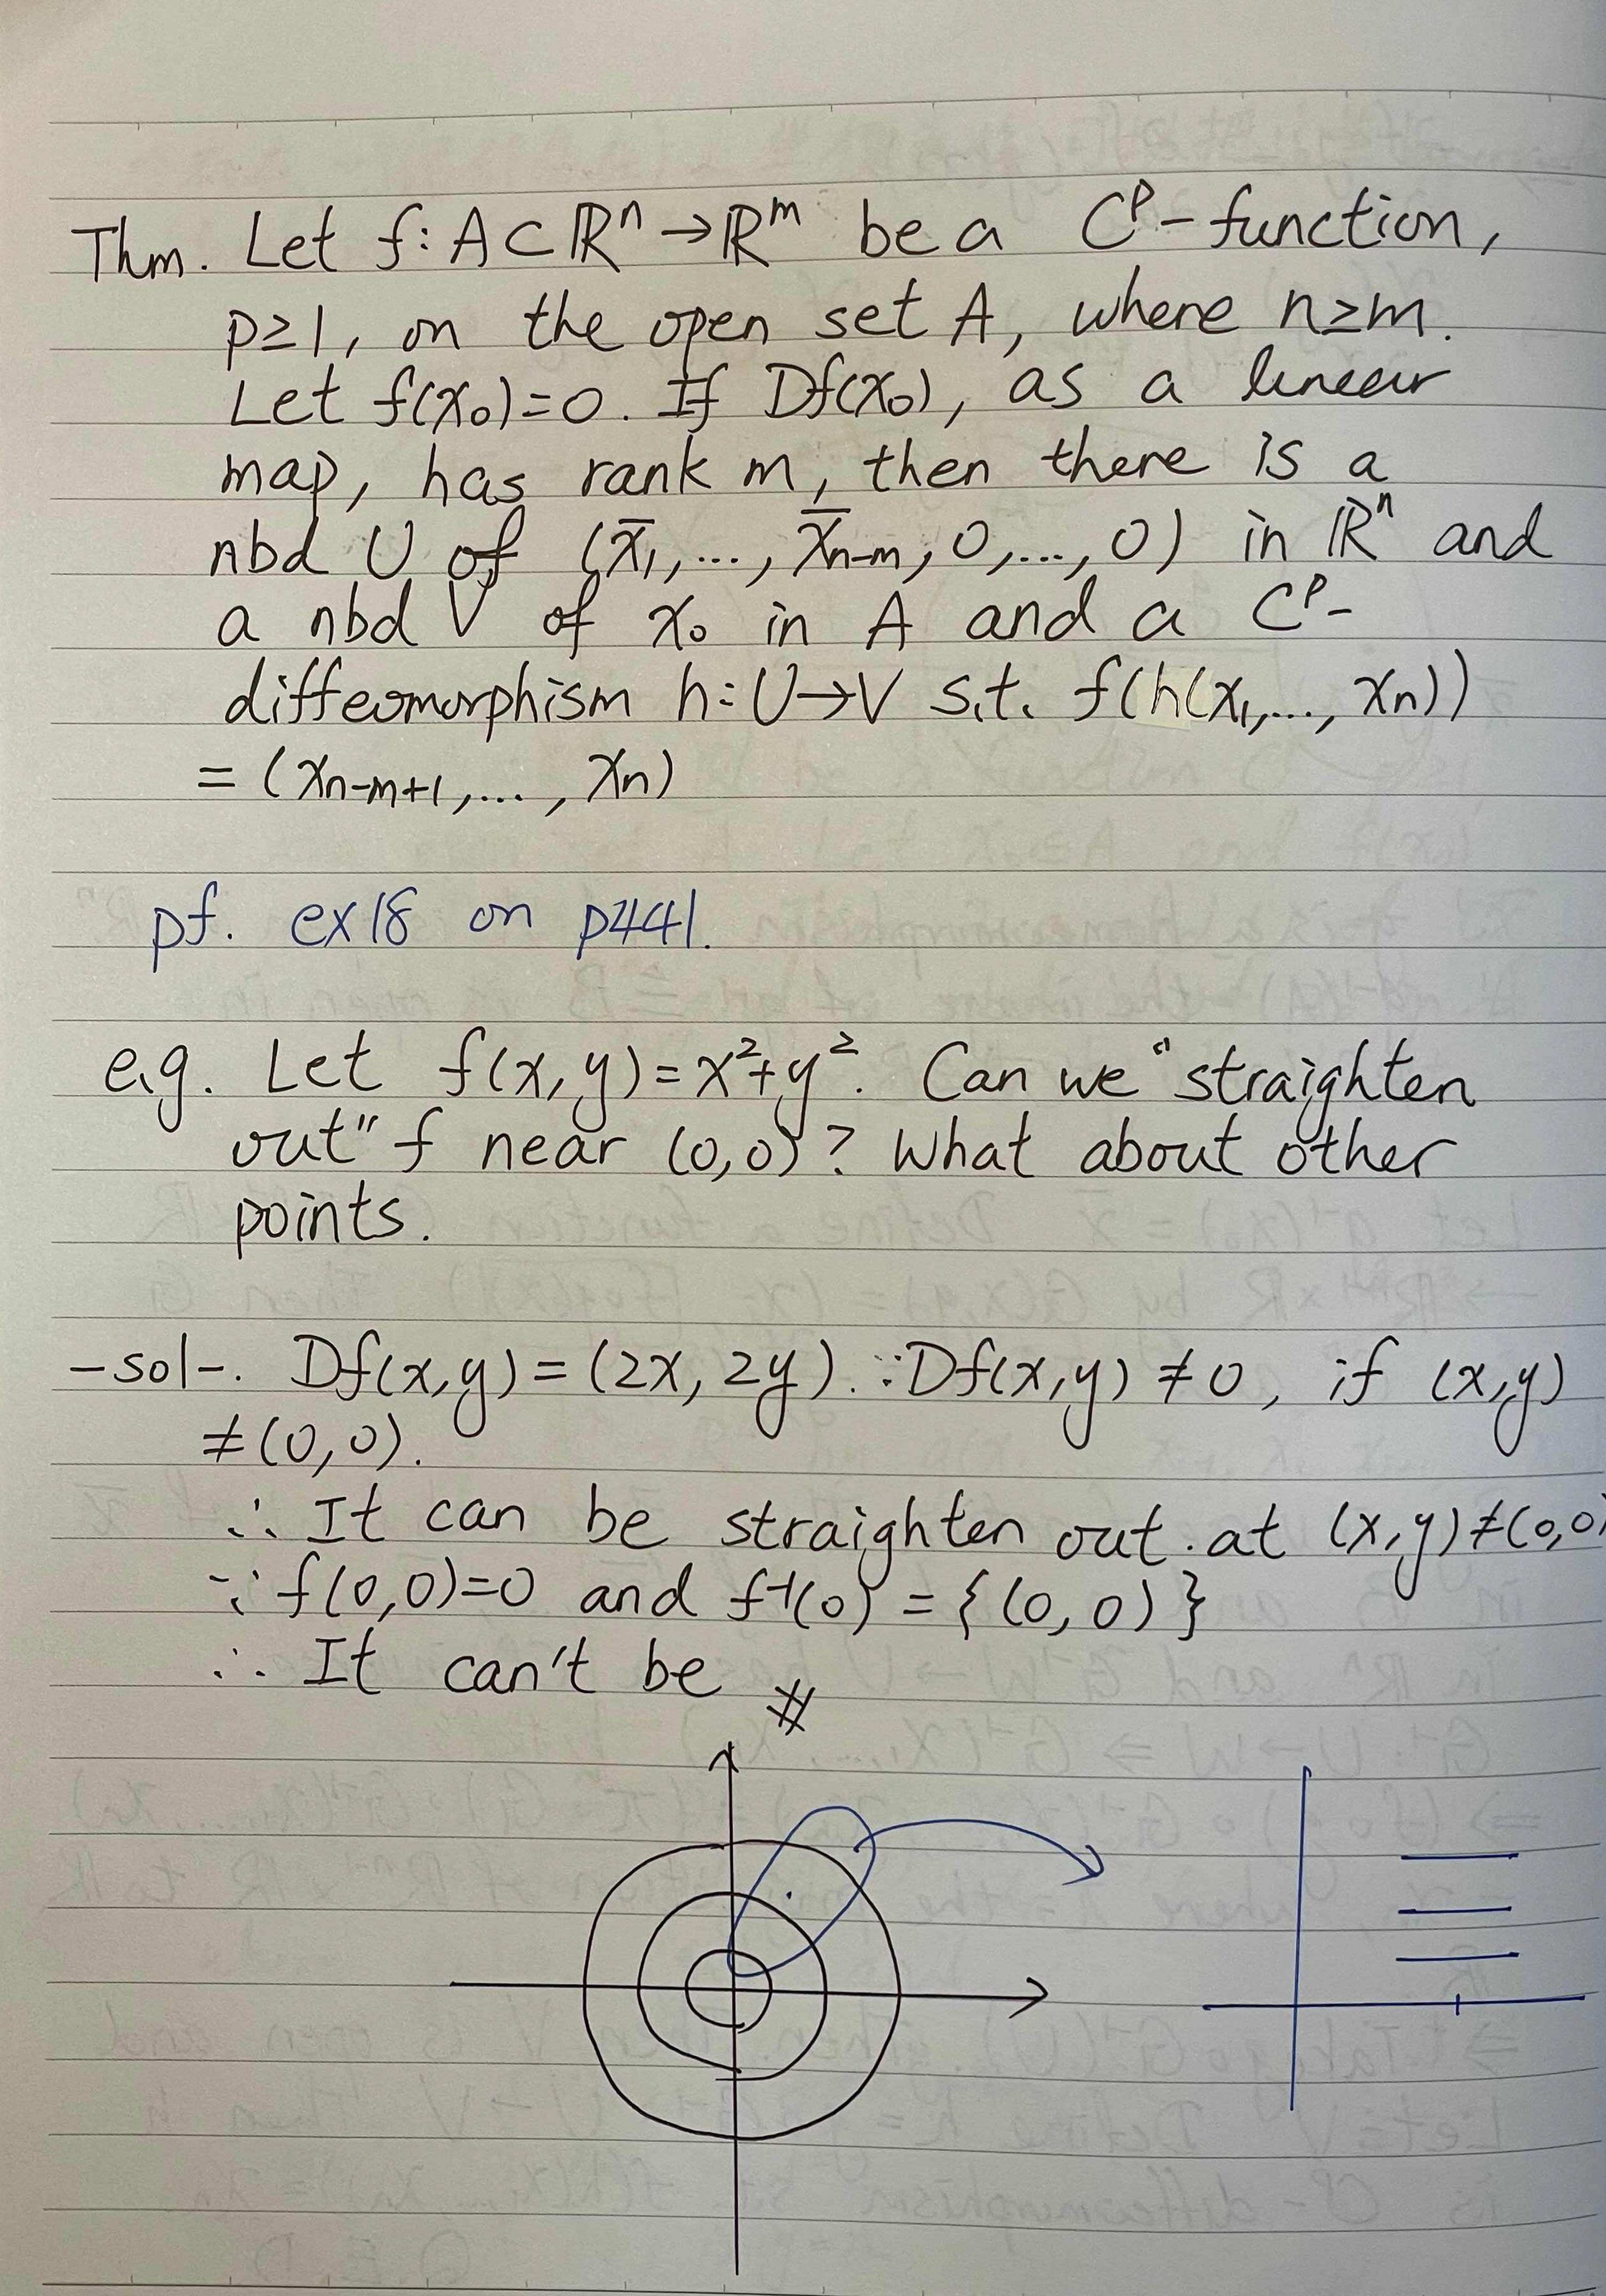 Thm. Let f: A⊂ℝⁿ→ℝᵐ be a Cᵖ-function,
p≥1, on the open set A, where n≥m.
Let f(x₀)=0. If Df(x₀), as a linear
map, has rank m, then there is a
nbd U of (x̅₁,..., x̅ₙ₋ₘ, 0,..., 0) in ℝⁿ and
a nbd V of x₀ in A and a Cᵖ-
diffeomorphism h: U→V s.t. f(h(x₁,..., xₙ))
= (xₙ₋ₘ₊₁,..., xₙ)
pf. ex18 on p441.
e.g. Let f(x,y)=x²+y². Can we "straighten
out" f near (0,0)? What about other
points.
-sol-. Df(x,y)=(2x, 2y). ∵Df(x,y)≠0, if (x,y)
≠(0,0).
∴ It can be straighten out. at (x,y)≠(0,0)
∵ f(0,0)=0 and f⁻¹(0)={(0,0)}
∴ It can't be #